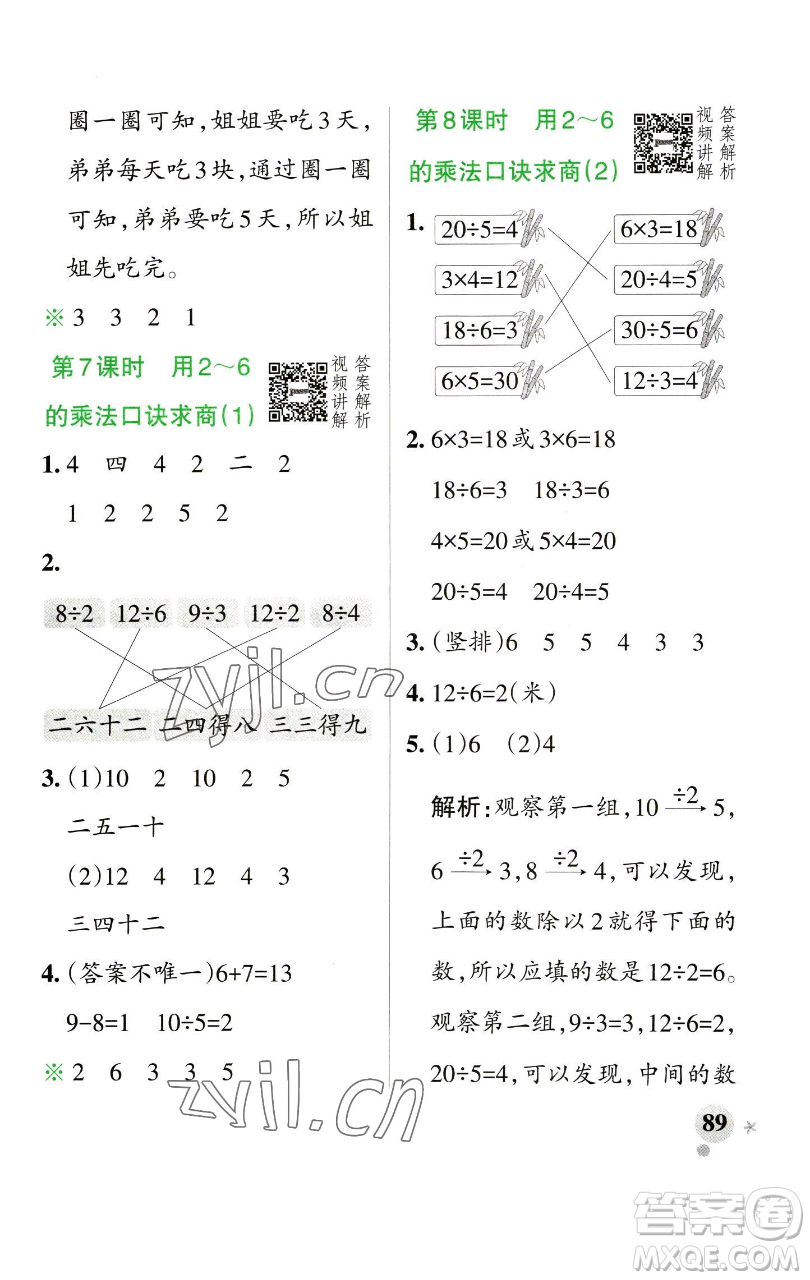 圈一圈可知,姐姐要吃3天,
弟弟每天吃3块,通过圈一圈
可知,弟弟要吃5天,所以姐
姐先吃完。
※ 3 3 2 1
第7课时 用2~6
的乘法口诀求商(1)
视频讲解
答案解析
1. 4 四 4 2 二 2
1 2 2 5 2
2.
8÷2 12÷6 9÷3 12÷2 8÷4
二六十二 二四得八 三三得九
3. (1)10 2 10 2 5
二五一十
(2)12 4 12 4 3
三四十二
4. (答案不唯一)6+7=13
9-8=1 10÷5=2
※ 2 6 3 3 5
第8课时 用2~6
的乘法口诀求商(2)
视频讲解
答案解析
1. 20÷5=4 6×3=18
3×4=12 20÷4=5
18÷6=3 30÷5=6
6×5=30 12÷3=4
2. 6×3=18或3×6=18
18÷6=3 18÷3=6
4×5=20或5×4=20
20÷5=4 20÷4=5
3. (竖排)6 5 5 4 3 3
4. 12÷6=2(米)
5. (1)6 (2)4
解析:观察第一组,10 ÷2→ 5,
6 ÷2→ 3,8 ÷2→ 4,可以发现,
上面的数除以2就得下面的
数,所以应填的数是12÷2=6。
观察第二组,9÷3=3,12÷6=2,
20÷5=4,可以发现,中间的数
89
zyjl.cn
zyjl.cn
答案圈
MXQE.COM